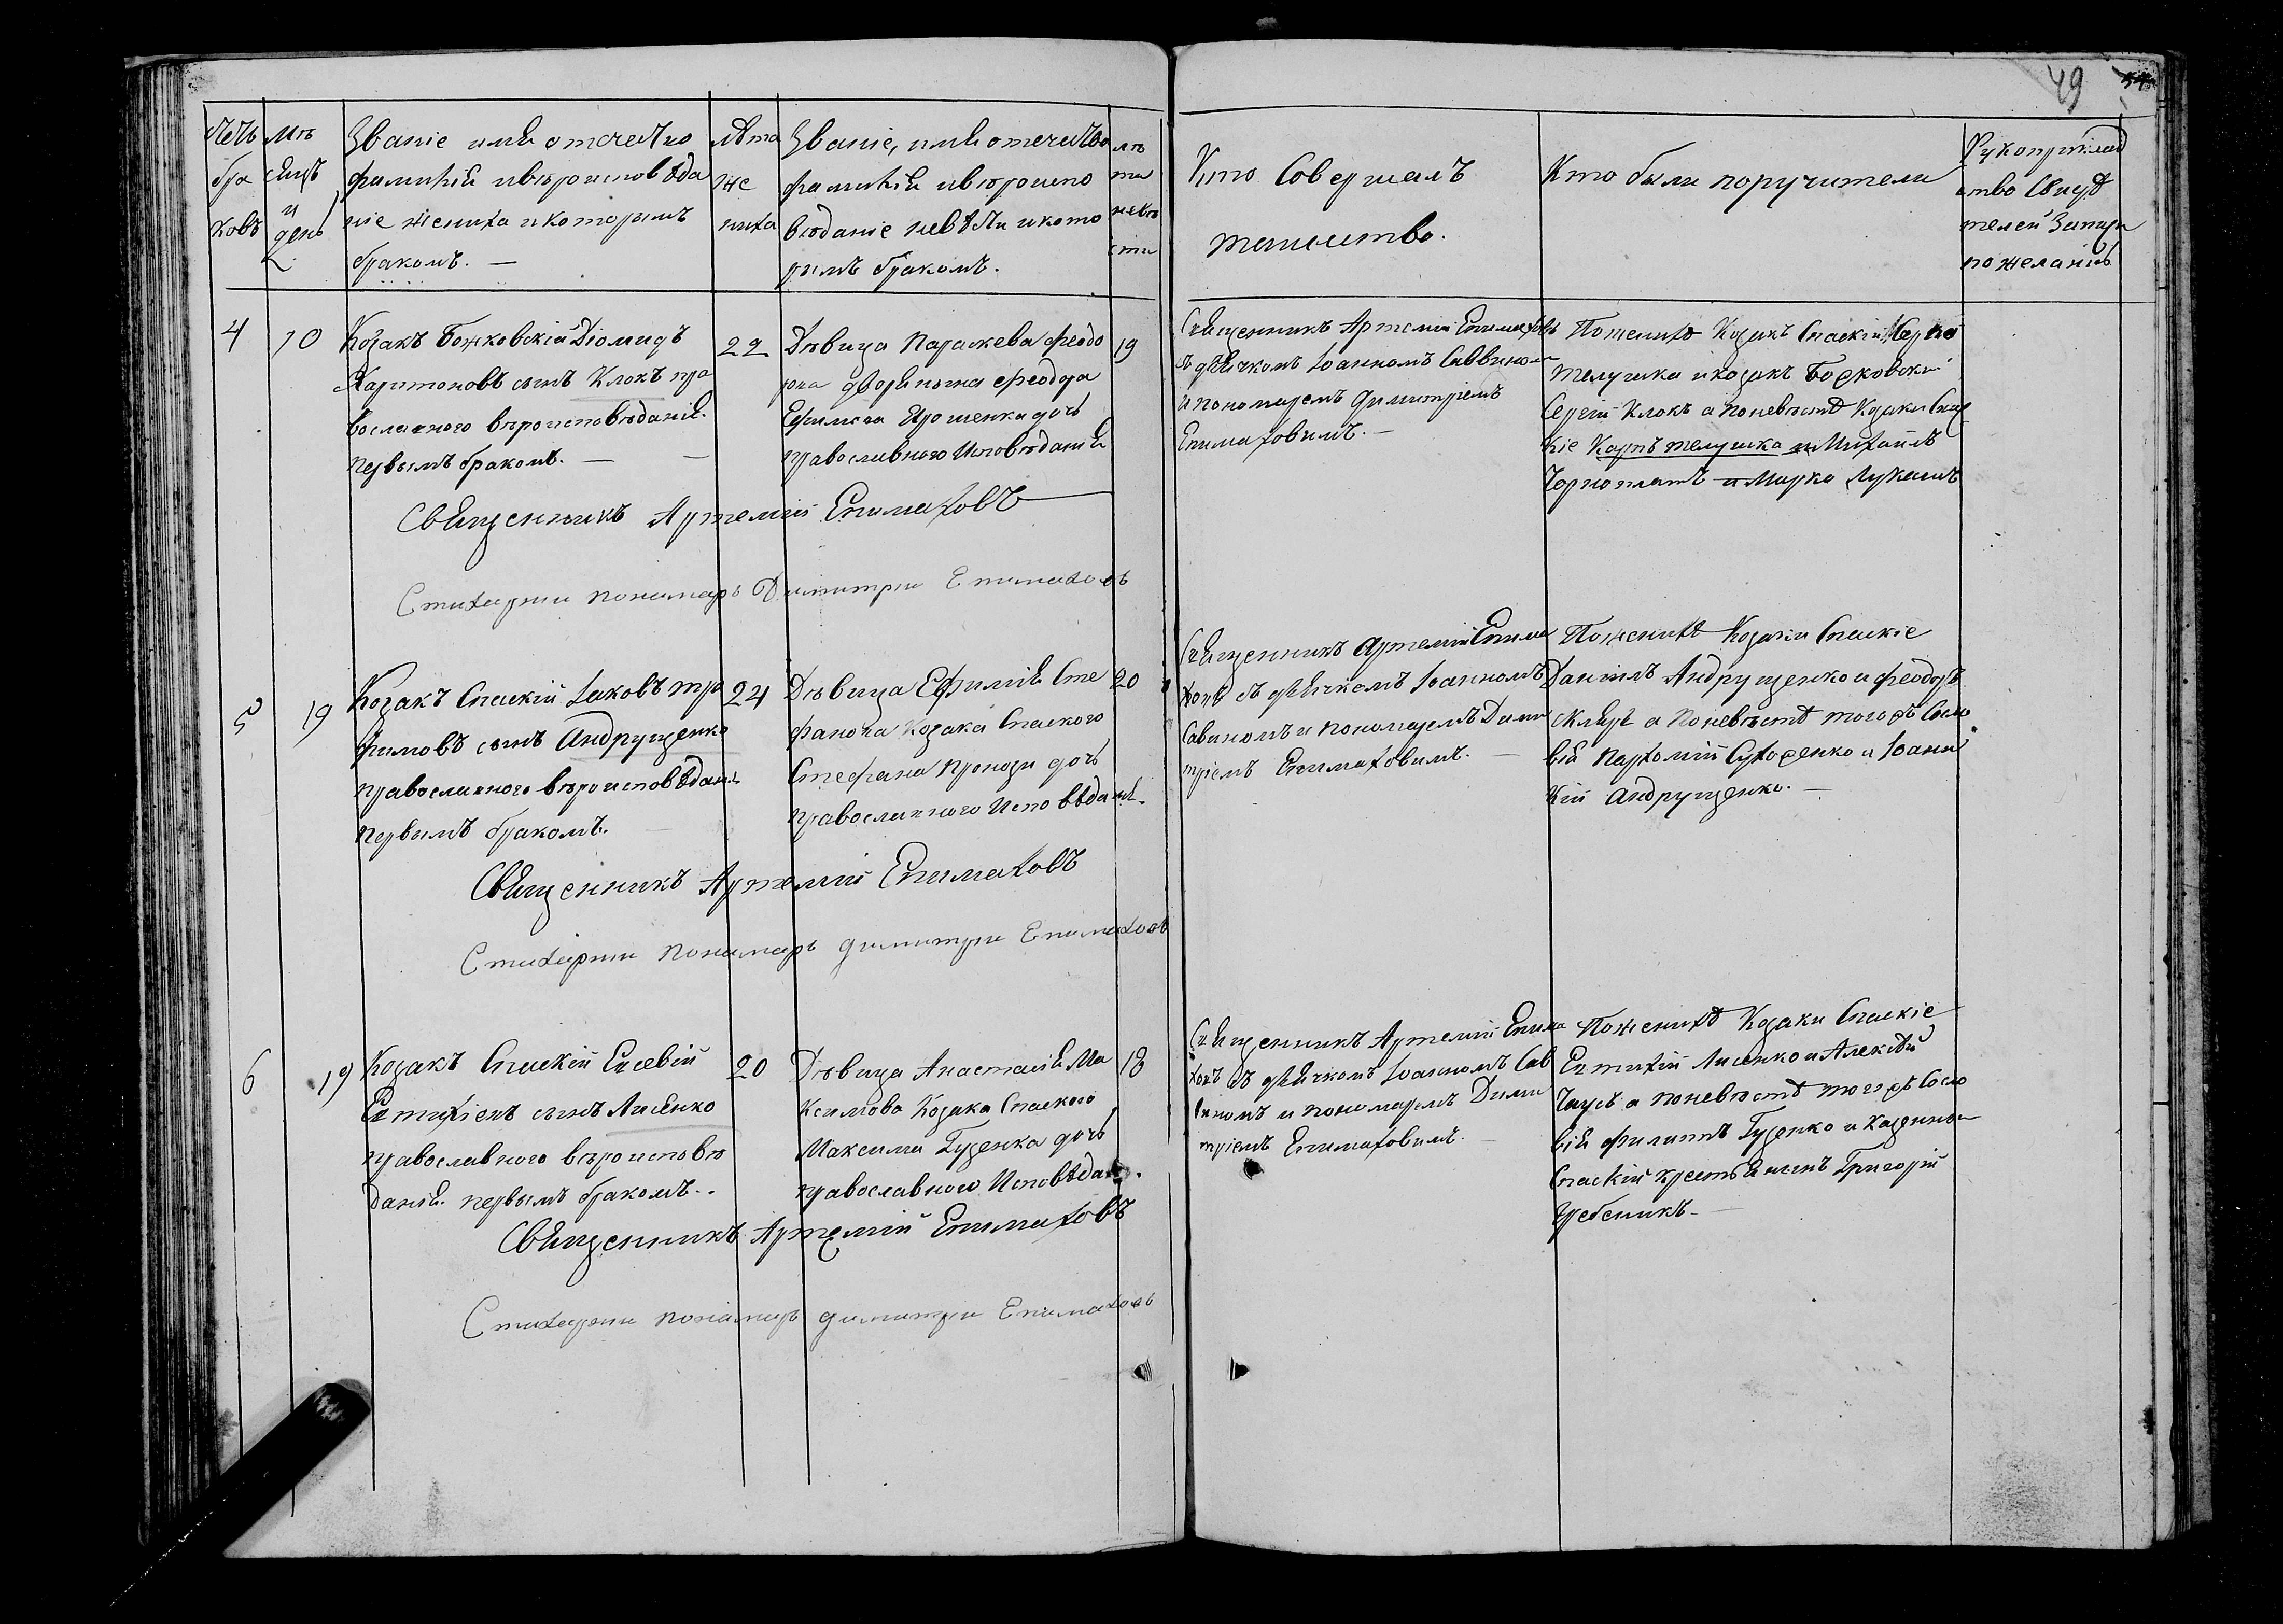 49
Счетъ браковъ
Мѣсяцъ и день
Званіе имя отечество
фамилія ивѣроисповѣда
ніе жениха икоторымъ
бракомъ. —
Лѣта жениха
Званіе, имя отечество
фамилія ивѣроиспо
вѣданіе невѣсти икото
рымъ бракомъ.
лѣта невѣсти
Кто совершалъ
таинство.
Кто были поручители
Рукоприклад
ство свидѣ
телей записи
по желанію
4 10
Козакъ Божковскій Діомидъ
Харитоновъ сынъ Клокъ пра
вославного вѣроисповѣданія.
первымъ бракомъ. —
22
Дѣвица Параскева Феодо
рова дворянина Феодора
Ефимова Ярошенка дочь
православного Исповѣданія
19
Священникъ Артемій Епимаховъ
съ дячкомъ Іоанномъ Саввиномъ
и пономаремъ Димитріемъ
Епимаховимъ. —
Поженихѣ Козакъ Спаскій Карпо
Телушка икозакъ Божковскій
Сергій Клокъ а поневѣстѣ Козаки Спас
кіе Карпъ телушка и Михаилъ
Чорноплатъ и Марко Лукашъ
Священникъ Артемій Епимаховъ
Стихарни понамаръ Димитри Епимаховъ
5 19
Козакъ Спаскій Іаковъ тро
фимовъ сынъ Андрущенко
православного вѣроисповѣданія
первымъ бракомъ.
24
Дѣвица Ефимія Сте
фанова Козака Спаского
Стефана Пронози дочь
православного Исповѣданія.
20
Священникъ Артемій Епима
ховъ съ дячкомъ Іоанномъ
Савиномъ и пономаремъ Дими
тріемъ Епимаховимъ. —
Поженихѣ Козаки Спаскіе
Даніилъ Андрущенко и Феодоръ
Скляръ а Поневѣстѣ тогожъ Сосло
вія Пархомій Сухоженко и Іоани
кій Андрущенко. —
Священникъ Артемій Епимаховъ
Стихарни понамаръ димитри Епимаховъ
6 19
Козакъ Спаскій Елсевій
Евтихіевъ сынъ Лисенко
православного вѣроисповѣ
данія. первымъ бракомъ.
20
Дѣвица Анастасія Ма
ксимова Козака Спаского
Максима Гуженка дочь
православного Исповѣданія.
18
Священникъ Артемій Епима
ховъ съ дячкомъ Іоанномъ Сав
иномъ и пономаремъ Дими
тріемъ Епимаховимъ. —
Поженихѣ Козаки Спаскіе
Евтихій Лисенко и Алексѣй
Чаусъ а поневѣстѣ тогожъ Сосло
вія Филиппъ Гуженко и Казенной
Спаскій крестьянинъ Григорій
Гребеникъ. —
Священникъ Артемій Епимаховъ
Стихарни понамаръ димитри Епимаховъ